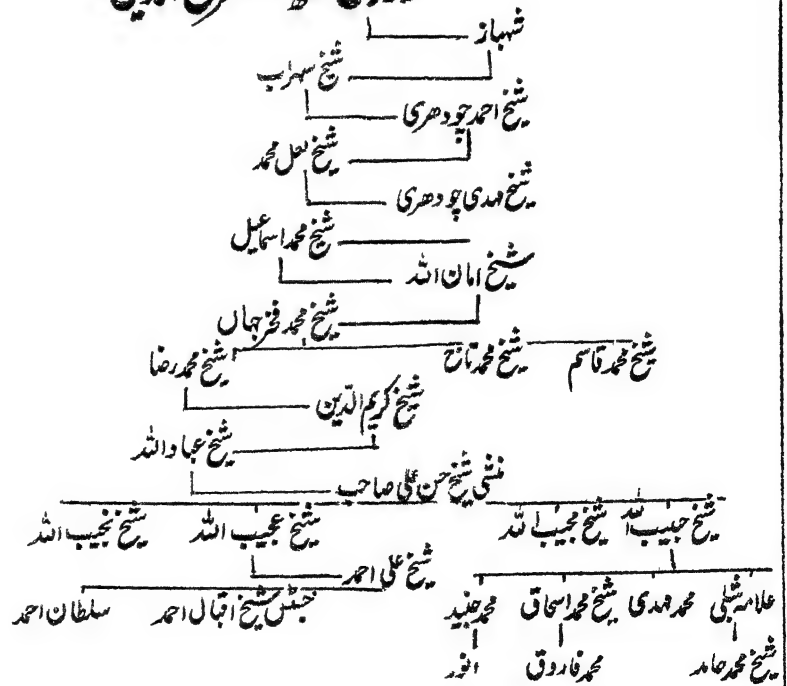 شہباز
شیخ سہراب
شیخ احمد چودھری
شیخ لعل محمد
شیخ مہدی چودھری
شیخ محمد اسماعیل
شیخ امان اللہ
شیخ محمد فخر جہاں
شیخ محمد قاسم شیخ محمد تاج شیخ محمد رضا
شیخ کریم الدّین
شیخ عباد اللہ
منشی شیخ حسن علی صاحب
شیخ حبیب اللہ شیخ مجیب اللہ شیخ عجیب اللہ شیخ نجیب اللہ
شیخ علی احمد
علامہ شبلی محمد مہدی شیخ محمد اسحاق محمد جنید جسٹس شیخ اقبال احمد سلطان احمد
شیخ محمد حامد محمد فاروق انور